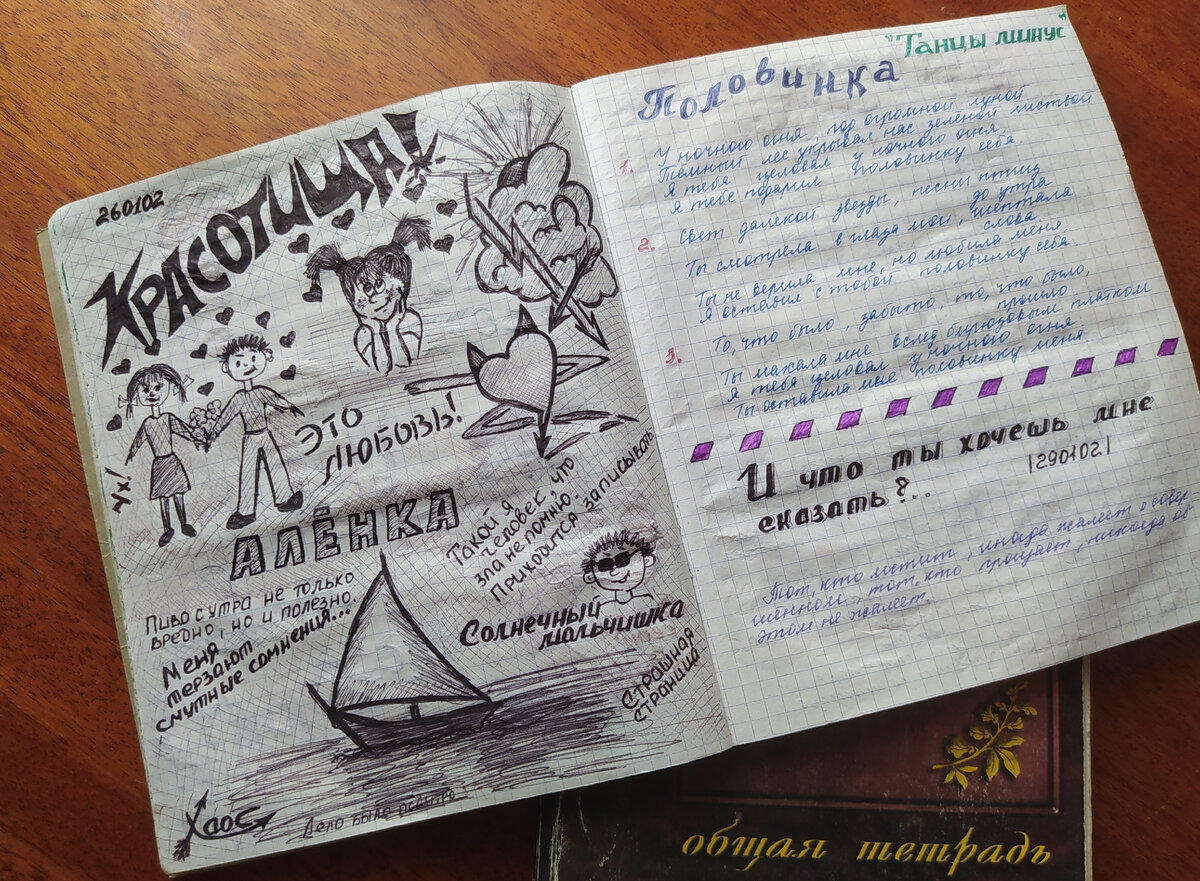 260102
КРАСОТИЩА!
ЭТО
ЛЮБОВЬ!
Ух!
АЛЁНКА
Такой я
человек, что
зла не помню.
Приходится записывать
Пиво с утра не только
вредно, но и полезно.
Меня
терзают
смутные сомнения...
Солнечный
мальчишка
Страшная
страница
Хаос
Дело было
"Танцы минус"
Половинка
1. У ночного огня, под огромной луной
Тёмный лес укрывал нас зелёной листвой
Я тебя целовал у ночного огня,
Я тебе подарил половинку себя.
2. Свет далёкой звезды, песни птиц
до утра
Ты смотрела в глаза мои, шептала
слова.
Ты не верила мне, но любила меня,
Я оставил с тобой половинку себя
3. То, что было, забыто, то, что было,
прошло
Ты махала мне вслед бирюзовым платком
Я тебя целовал у ночного огня
Ты оставила мне половинку меня.
И что ты хочешь мне
сказать?..
|290102|
Тот, кто мстит, иногда жалеет о совер
шённом, тот, кто прощает, никогда об
этом не жалеет.
общая тетрадь